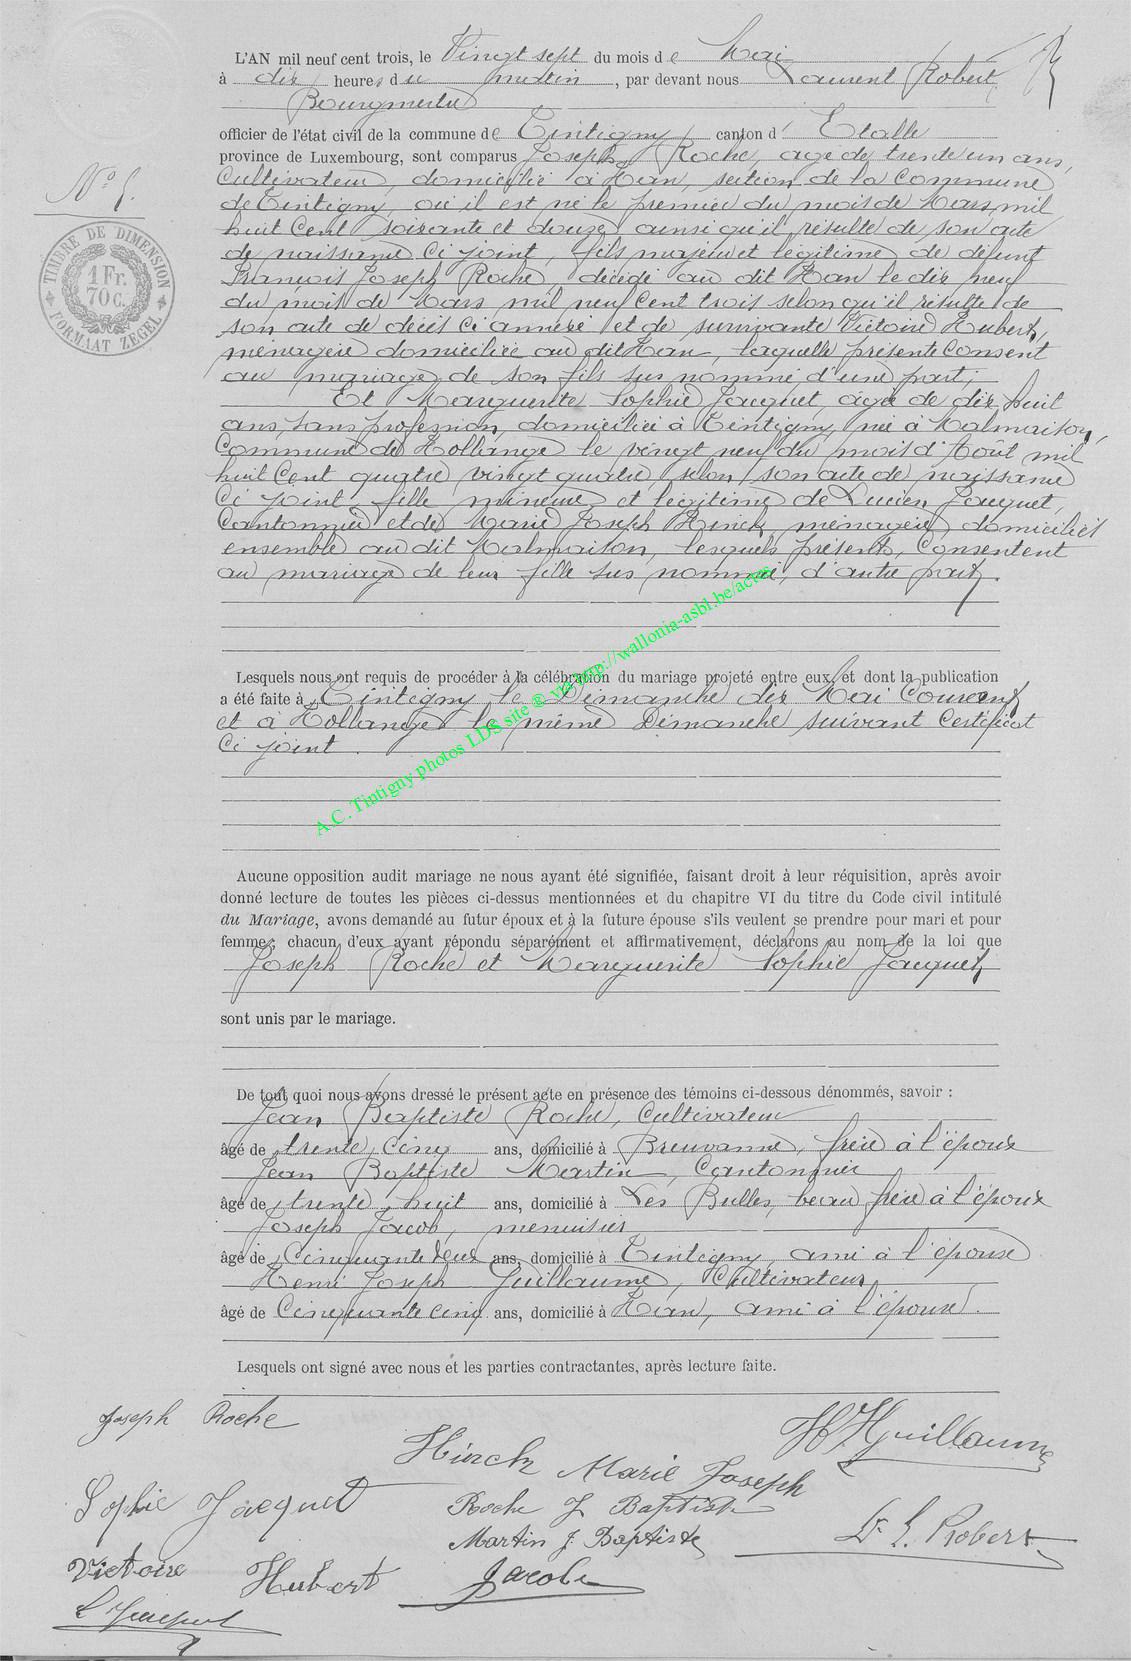 L'AN mil neuf cent trois, le Vingt sept du mois de Mai
à dix heures du matin, par devant nous Laurent Robert
Bourgmestre
officier de l'état civil de la commune de Tintigny canton d' Etalle
province de Luxembourg, sont comparus Joseph Roche, agé de trente un ans,
Cultivateur, domicilié à Han, section de la Commune
de Tintigny, où il est né le premier du mois de Mars mil
huit Cent soixante et douze ainsi qu'il résulte de son acte
de naissance Ci joint, fils majeur et légitime de défunt
François Joseph Roche décédé au dit Han le dix neuf
du mois de Mars mil neuf Cent trois selon qu'il résulte de
son acte de décès Ci annexé et de survivante Victoire Hubert,
ménagère domiciliée au dit Han, laquelle présente Consent
au mariage de son fils sus nommé d'une part;
Et Marguerite Sophie Jacquet, âgée de dix huit
ans, sans profession, domiciliée à Tintigny, née à Malmaison,
Commune de Hollange le vingt neuf du mois d'Août mil
huit Cent quatre vingt quatre, selon son acte de naissance
Ci joint fille mineure et légitime de Lucien Jacquet,
Cantonnier et de Marie Joseph Hinck, ménagère, domiciliés
ensemble au dit Malmaison, lesquels présents, Consentent
au mariage de leur fille sus nommée, d'autre part.
Lesquels nous ont requis de procéder à la célébration du mariage projeté entre eux, et dont la publication
a été faite à Tintigny le Dimanche dix Mai Courant
et à Hollange le même Dimanche suivant Certificat
Ci joint.
Aucune opposition audit mariage ne nous ayant été signifiée, faisant droit à leur réquisition, après avoir
donné lecture de toutes les pièces ci-dessus mentionnées et du chapitre VI du titre du Code civil intitulé
du Mariage, avons demandé au futur époux et à la future épouse s'ils veulent se prendre pour mari et pour
femme; chacun d'eux ayant répondu séparément et affirmativement, déclarons au nom de la loi que
Joseph Roche et Marguerite Sophie Jacquet
sont unis par le mariage.
De tout quoi nous avons dressé le présent acte en présence des témoins ci-dessous dénommés, savoir :
Jean Baptiste Roche, Cultivateur
âgé de trente cinq ans, domicilié à Breuvanne, frère à l'époux
Jean Baptiste Martin, Cantonnier
âgé de trente huit ans, domicilié à Les Bulles, beau frère à l'époux
Joseph Jacob, menuisier
âgé de Cinquante deux ans, domicilié à Tintigny, ami à l'épouse
Henri Joseph Guillaume, Cultivateur,
âgé de Cinquante cinq ans, domicilié à Han, ami à l'épouse.
Lesquels ont signé avec nous et les parties contractantes, après lecture faite.
Joseph Roche
H. J. Guillaume
Hinck Marie Joseph
Sophie Jacquet
Roche J Baptiste
Martin J. Baptiste
Dr L. Robert
Victoire Hubert
Jacob
L Jacquet
N° 5.
TIMBRE DE DIMENSION
1 Fr.
70 C.
FORMAAT ZEGEL
A.C. Tintigny photos LDS site ® via http://wallonia-asbl.be/actes